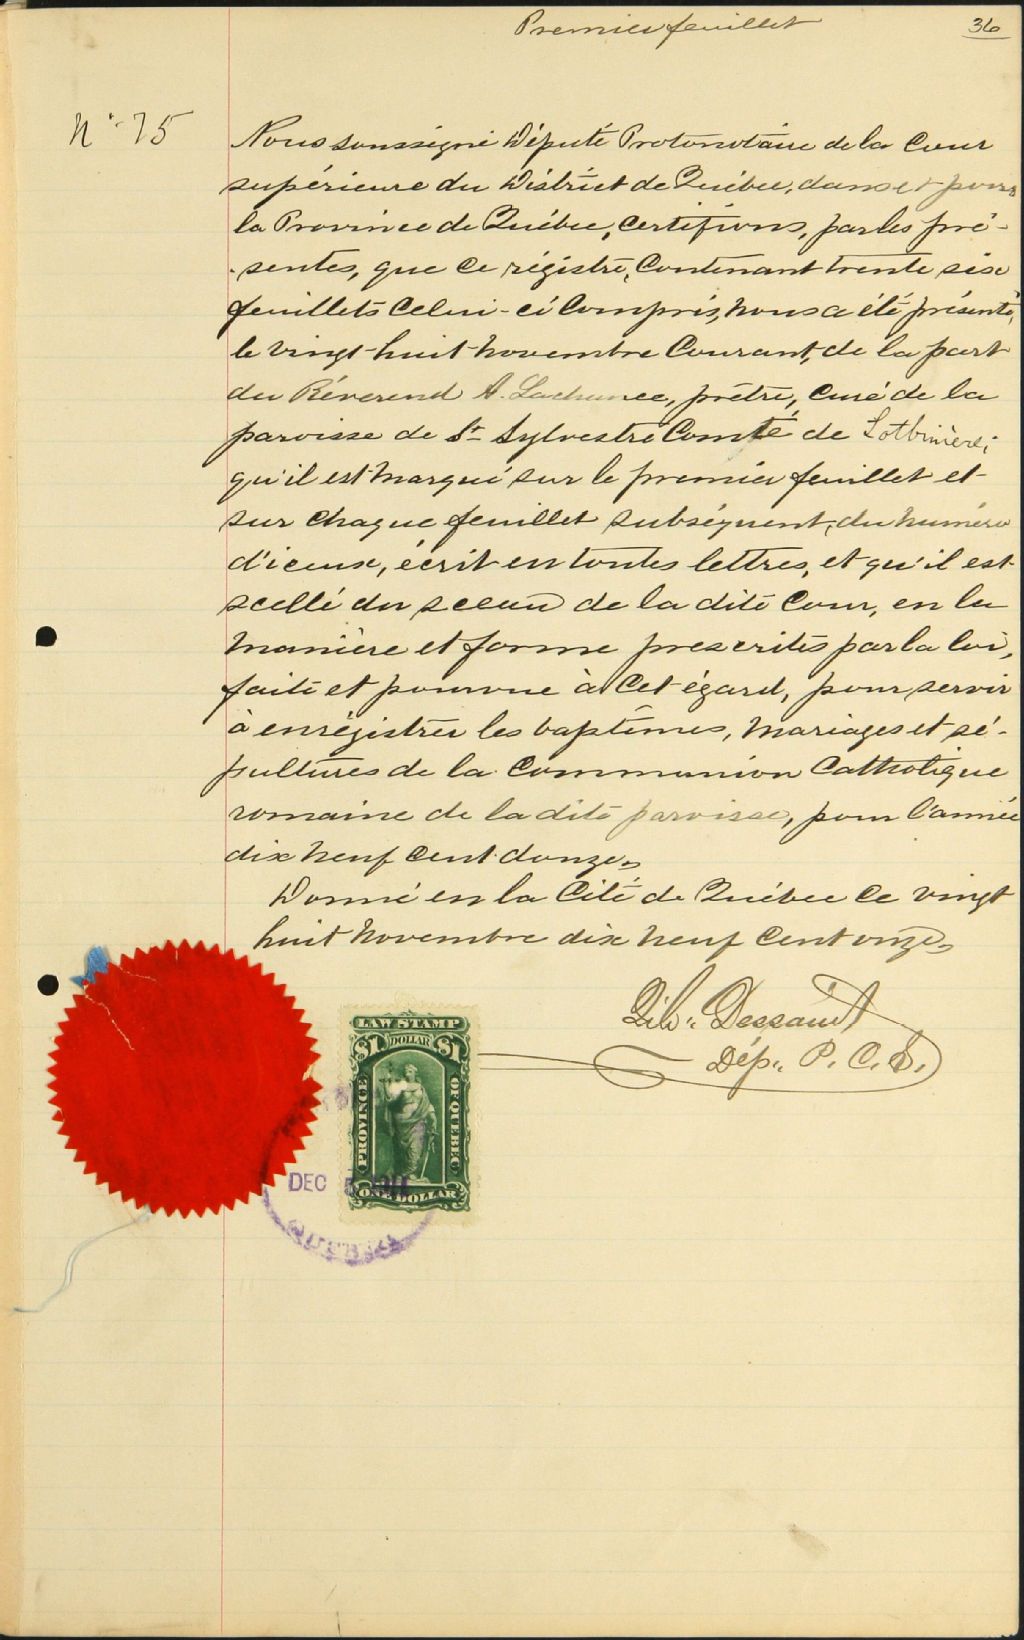 Premier feuillet
36
No. 75
Nous soussigné Député Protonotaire de la Cour
supérieure du District de Québec, dans et pour
la Province de Québec, certifions, par les pré-
-sentes, que ce régistre, contenant trente six
feuillets celui-ci compris, nous a été présenté,
le vingt-huit novembre courant, de la part
du Révérend A. Lachance, prêtre, curé de la
paroisse de St Sylvestre Comté de Lotbinière;
qu'il est marqué sur le premier feuillet et
sur chaque feuillet subséquent, du numéro
d'iceux, écrit en toutes lettres, et qu'il est
scellé du sceau de la dite Cour, en la
manière et forme prescrites par la loi,
faite et pourvue à cet égard, pour servir
à enrégistrer les baptêmes, mariages et sé-
pultures de la Communion Catholique
romaine de la dite paroisse, pour l'année
dix neuf cent douze.
Donné en la Cité de Québec ce vingt
huit novembre dix neuf cent onze.
Dessaint
Dép. P. C. S.
LAW STAMP
$1 DOLLAR $1
PROVINCE
OF QUEBEC
ONE DOLLAR
DEC 5 1911
QUEBEC